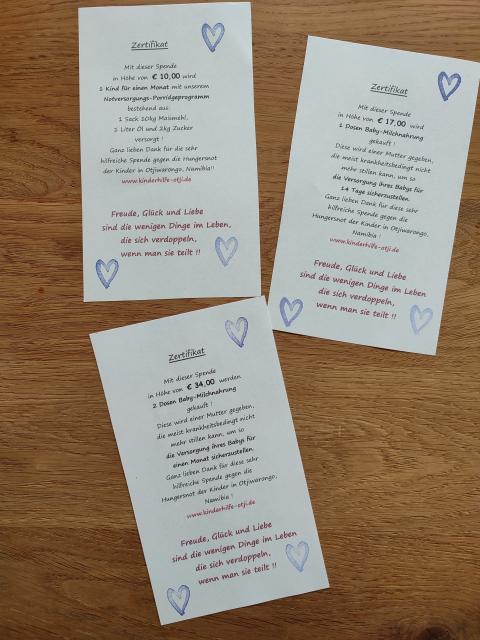 Zertifikat
Mit dieser Spende
in Höhe von € 10,00 wird
1 Kind für einen Monat mit unserem
Notversorgungs-Porridgeprogramm
bestehend aus:
1 Sack 10kg Maismehl,
2 Liter Öl und 2kg Zucker
versorgt !
Ganz lieben Dank für die sehr
hilfreiche Spende gegen die Hungersnot
der Kinder in Otjiwarongo, Namibia!!
www.kinderhilfe-otji.de
Freude, Glück und Liebe
sind die wenigen Dinge im Leben,
die sich verdoppeln,
wenn man sie teilt !!
Zertifikat
Mit dieser Spende
in Höhe von € 17,00 wird
1 Dosen Baby-Milchnahrung
gekauft !
Diese wird einer Mutter gegeben,
die meist krankheitsbedingt nicht
mehr stillen kann, um so
die Versorgung ihres Babys für
14 Tage sicherzustellen.
Ganz lieben Dank für diese sehr
hilfreiche Spende gegen die
Hungersnot der Kinder in Otjiwarongo,
Namibia !
www.kinderhilfe-otji.de
Freude, Glück und Liebe
sind die wenigen Dinge im Leben
die sich verdoppeln,
wenn man sie teilt !!
Zertifikat
Mit dieser Spende
in Höhe von € 34,00 werden
2 Dosen Baby-Milchnahrung
gekauft !
Diese wird einer Mutter gegeben,
die meist krankheitsbedingt nicht
mehr stillen kann, um so
die Versorgung ihres Babys für
einen Monat sicherzustellen.
Ganz lieben Dank für diese sehr
hilfreiche Spende gegen die
Hungersnot der Kinder in Otjiwarongo,
Namibia !
www.kinderhilfe-otji.de
Freude, Glück und Liebe
sind die wenigen Dinge im Leben
die sich verdoppeln,
wenn man sie teilt !!